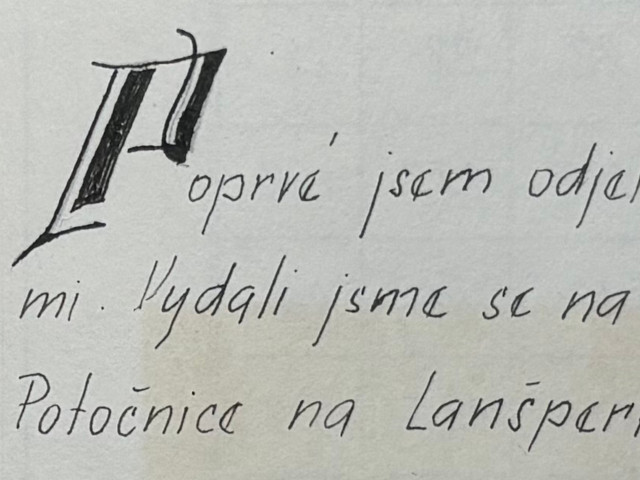 Poprvé jsem odjel
mi. Vydali jsme se na
Potočnice na Lanšper